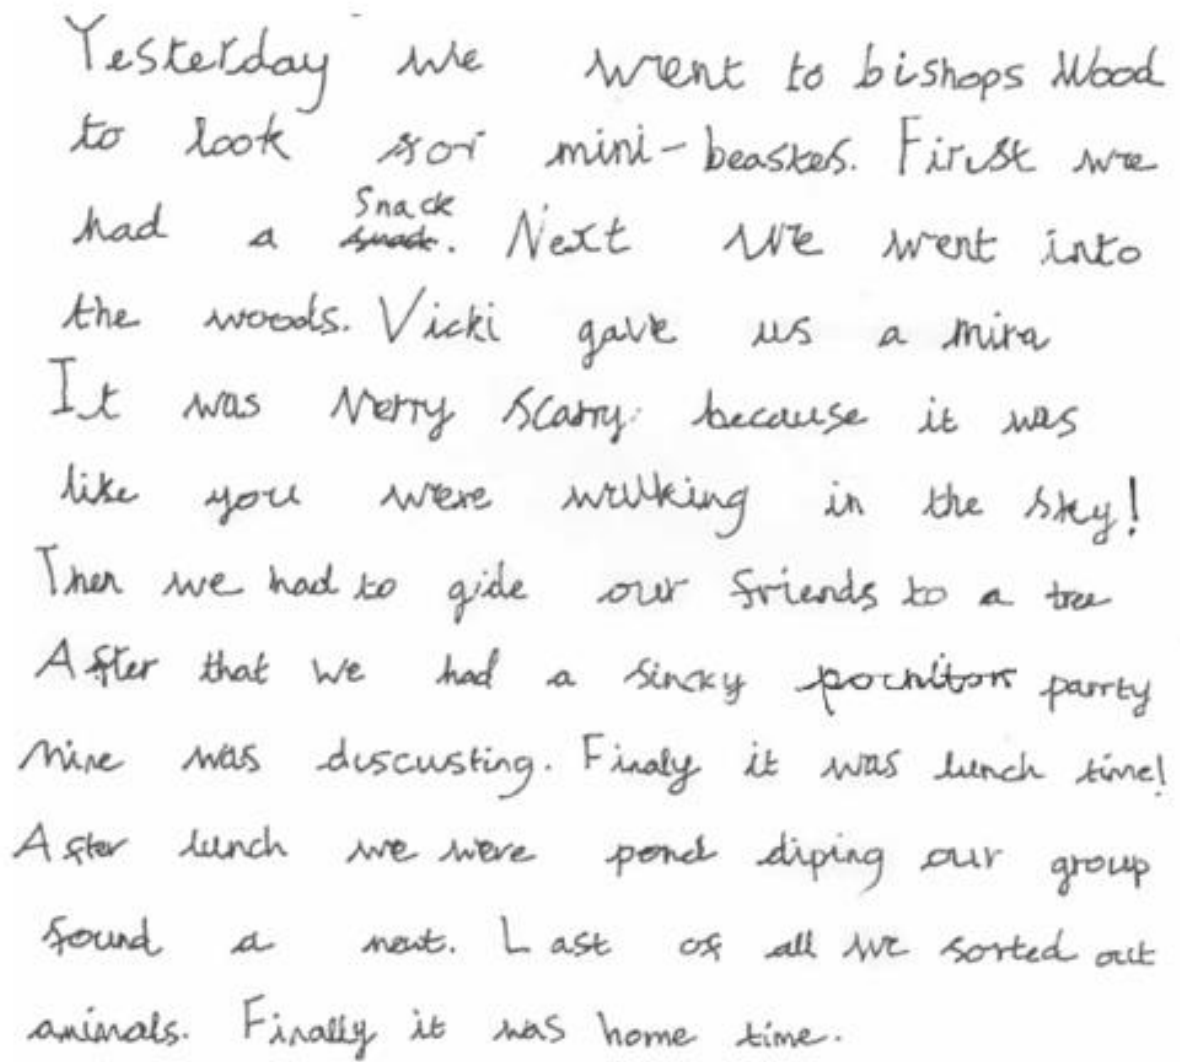 Yesterday we went to bishops Wood
to look for mini-beastes. First we
had a Snack. Next we went into
the woods. Vicki gave us a mira
It was verry scarry because it was
like you were walking in the sky!
Then we had to gide our friends to a tree
After that we had a sincky parrty
mine was discusting. Finaly it was lunch time!
After lunch we were pond diping our group
found a newt. Last of all we sorted out
animals. Finally it was home time.